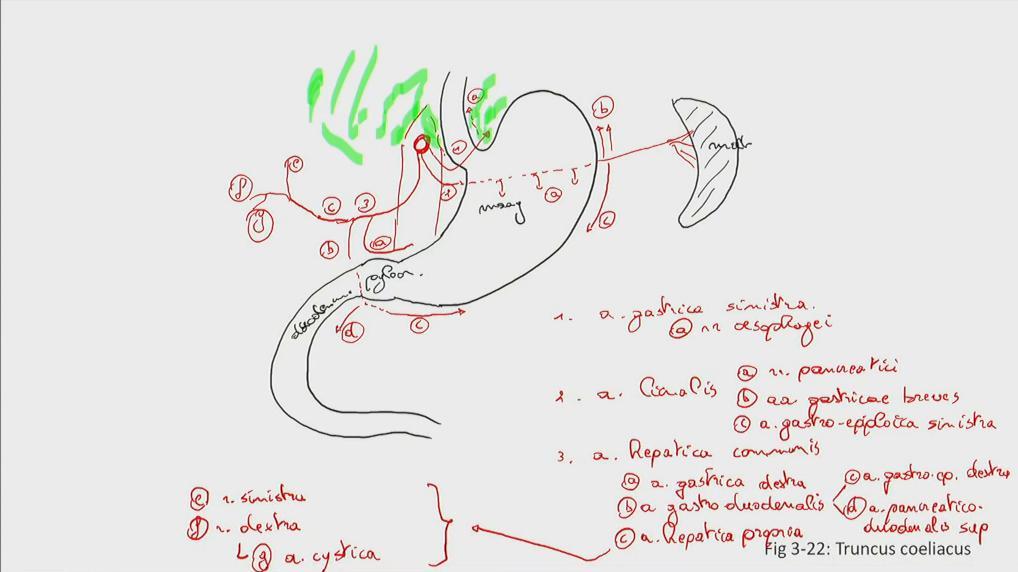 a
b
milt
e
1
f
c
3
2
a
g
maag
c
b
a
pyloor.
duodenum
d
c
1. a. gastrica sinistra.
a rr oesophagei
2. a. lienalis
a rr. pancreatici
b aa. gastricae breves
c a. gastro-epiploica sinistra
3. a. hepatica communis
a a. gastrica dextra
b a gastroduodenalis
c a. gastro.ep. dextra
d a. pancreatico-
duodenalis sup
c a. hepatica propria
e r. sinistra
f r. dextra
g a. cystica
Fig 3-22: Truncus coeliacus